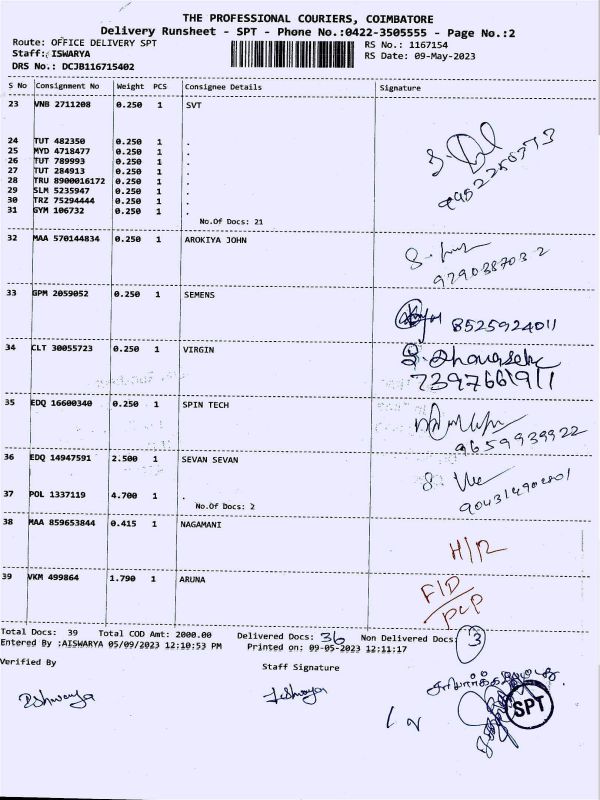 THE PROFESSIONAL COURIERS, COIMBATORE
Delivery Runsheet - SPT - Phone No.:0422-3505555 - Page No.:2
Route: OFFICE DELIVERY SPT RS No.: 1167154
Staff: ISWARYA RS Date: 09-May-2023
DRS No.: DCJB116715402
S No Consignment No Weight PCS Consignee Details Signature
23 VNB 2711208 0.250 1 SVT
24 TUT 482350 0.250 1 .
25 MYD 4718477 0.250 1 .
26 TUT 789993 0.250 1 .
27 TUT 284913 0.250 1 .
28 TRU 8900016172 0.250 1 .
29 SLM 5235947 0.250 1 .
30 TRZ 75294444 0.250 1 .
31 GYM 106732 0.250 1 .
No.Of Docs: 21
32 MAA 570144834 0.250 1 AROKIYA JOHN
9290387032
33 GPM 2059052 0.250 1 SEMENS
8525924011
34 CLT 30055723 0.250 1 VIRGIN
7397661911
35 EDQ 16600340 0.250 1 SPIN TECH
9659939922
36 EDQ 14947591 2.500 1 SEVAN SEVAN
37 POL 1337119 4.700 1 .
No.Of Docs: 2
38 MAA 859653844 0.415 1 NAGAMANI
H/R
39 VKM 499864 1.790 1 ARUNA
F/D
PCP
Total Docs: 39 Total COD Amt: 2000.00 Delivered Docs: 36 Non Delivered Docs: 3
Entered By :AISWARYA 05/09/2023 12:10:53 PM Printed on: 09-05-2023 12:11:17
Verified By Staff Signature
SPT